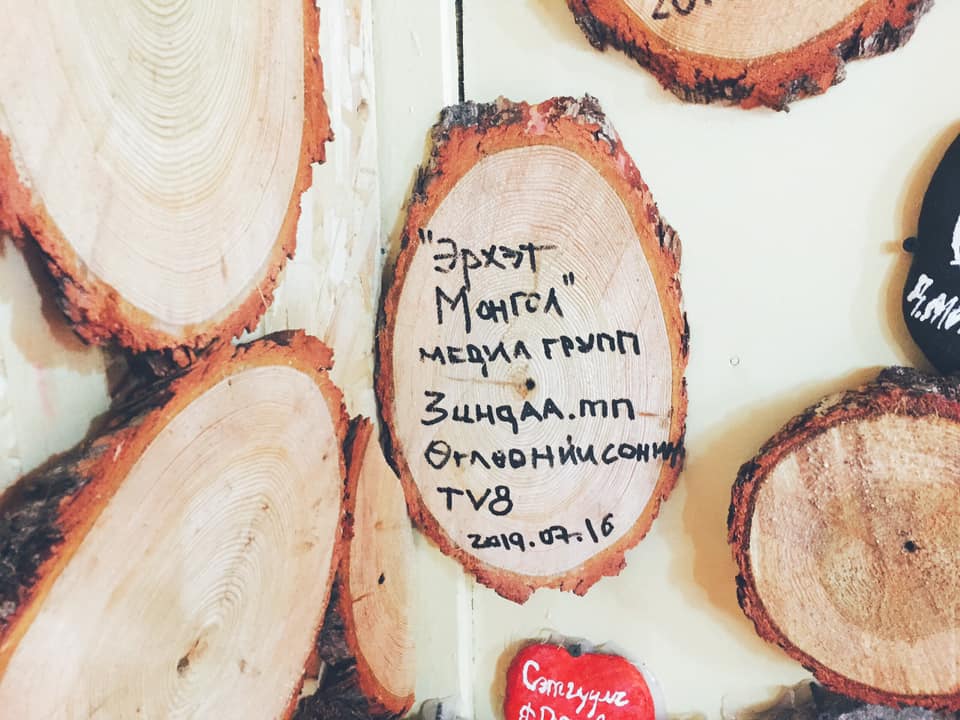 201
"Эрхэт
Монгол"
МЕДИА ГРУПП
Зиндаа.mn
Өглөөний сонин
TV8
2019.07.16
Сэтгүүлч